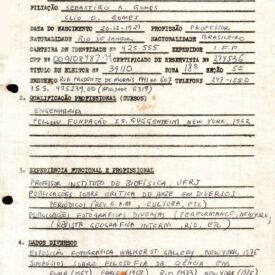 FILIAÇÃO SEBASTIÃO A. GOMES
CLIO O. GOMES
DATA DO NASCIMENTO 20-12-1927 PROFISSÃO PROFESSOR
NATURALIDADE RIO DE JANEIRO NACIONALIDADE BRASILEIRO
CARTEIRA DE IDENTIDADE Nº 425.555 EXPEDIDOR I.F.P.
CPF CERTIFICADO DE RESERVISTA Nº
TÍTULO DE ELEITOR Nº 34110 ZONA 18ª SEÇÃO 5ª
TELEFONE 247-1550
I.S.S.
2. QUALIFICAÇÃO PROFISSIONAL (CURSOS)
ENGENHARIA
FELLOW FUNDAÇÃO J.S. GUGGENHEIM NEW YORK, 1962
3. EXPERIÊNCIA FUNCIONAL E PROFISSIONAL
PROFESSOR INSTITUTO DE BIOFÍSICA, UFRJ
PUBLICAÇÕES SOBRE CRÍTICA DE ARTE EM DIVERSOS
PERIÓDICOS CULTURA, ETC)
PUBLICAÇÕES FOTOGRÁFICAS DIVERSAS (PERFORMANCE, NEW YORK,
REVISTA GEOGRÁFICA RIO, ETC)
4. DADOS DIVERSOS
EXPOSIÇÃO FOTOGRÁFICA GALLERY, NEW YORK, 1975
SIMPÓSIO SOBRE FILOSOFIA DA CIÊNCIA EM
RIO (1973) NEW YORK